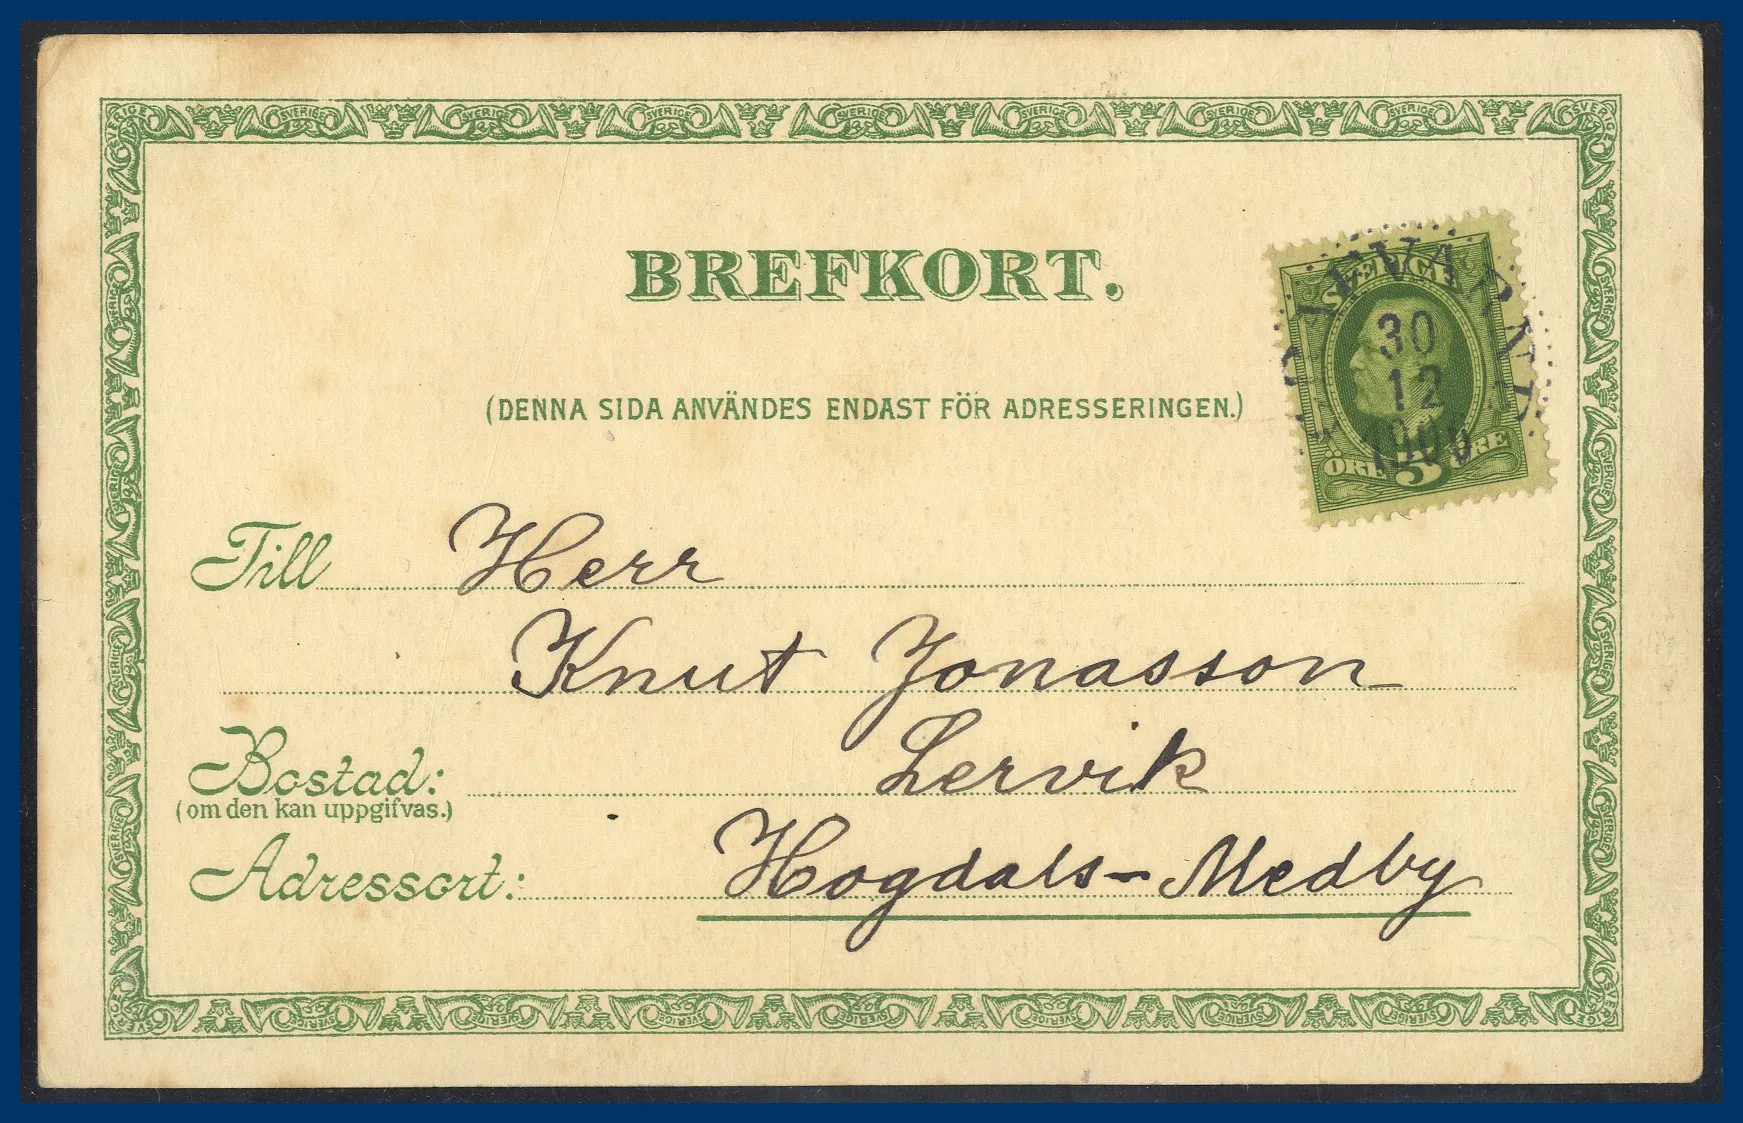 BREFKORT.
(DENNA SIDA ANVÄNDES ENDAST FÖR ADRESSERINGEN.)
SVERIGE
30
12
ÖRE 5 ÖRE
Till Herr
Knut Jonasson
Bostad: Lervik
(om den kan uppgifvas.)
Adressort: Hogdals-Medby